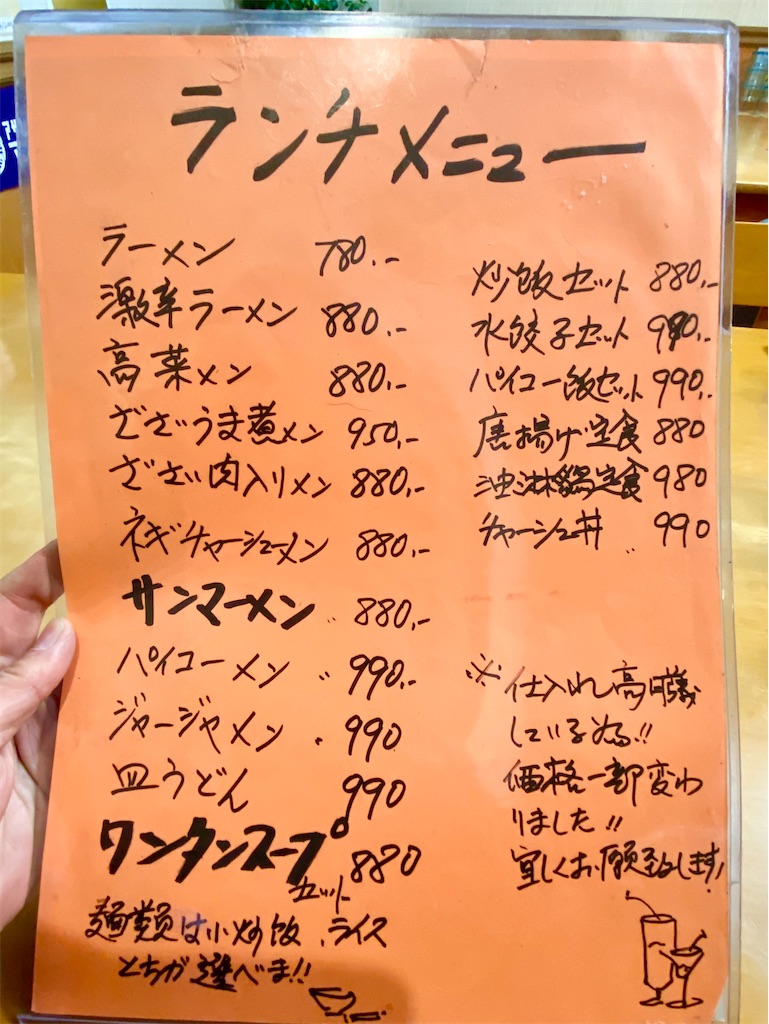 ランチメニュー
ラーメン 780.-
激辛ラーメン 880.-
高菜メン 880.-
ざざうま煮メン 950.-
ざざい肉入りメン 880.-
ネギチャーシューメン 880.-
サンマーメン 880.-
パイコーメン 990.-
ジャージャメン 990
皿うどん 990
ワンタンスープ
セット 880
麺類は小炒飯、ライス
どちが選べま!!
炒飯セット 880.-
水餃子セット 980.-
パイコー飯セット 990.-
唐揚げ定食 880
油淋鶏定食 980
チャーシュ丼 990
※仕入れ高騰
している為!!
価格一部変わ
りました!!
宜しくお願致します!